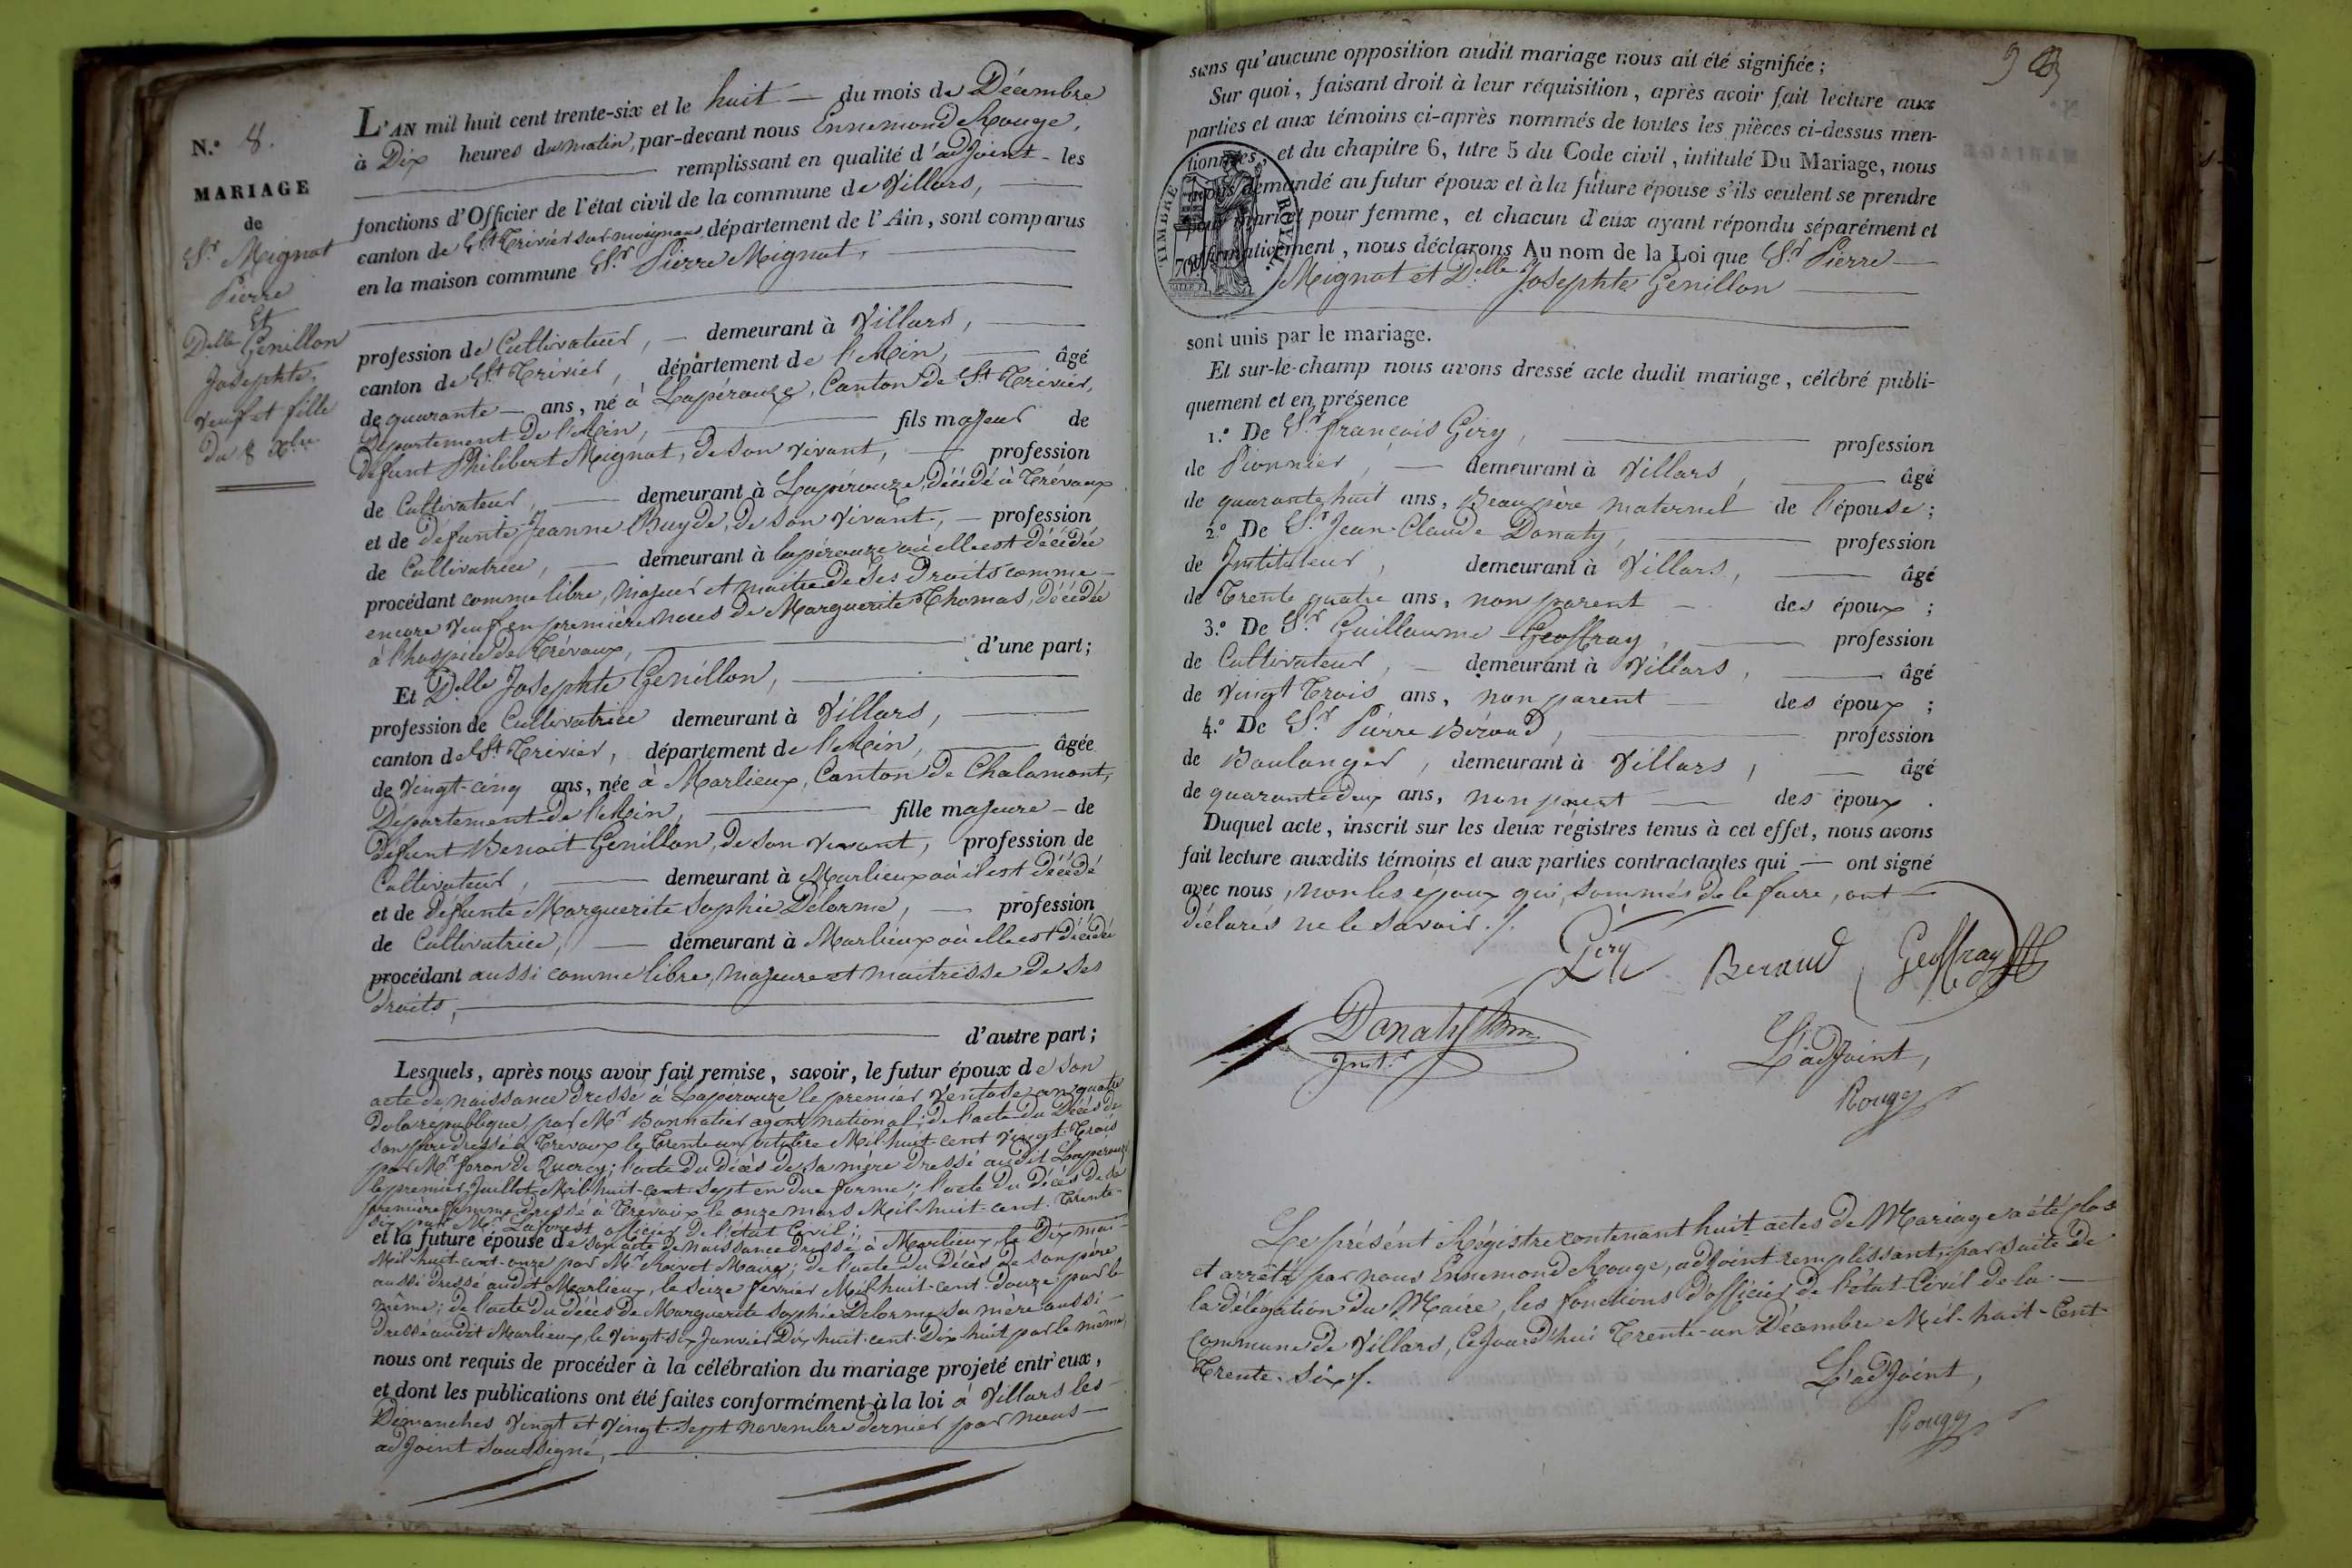 N.o 8.
MARIAGE
de
Sr. Mignot
Pierre
Et
Delle Genillon
Josephte,
veuf et fille
du 8 Xbre
L'AN mil huit cent trente-six et le huit — du mois de Décembre
à Dix heures du matin, par-devant nous Ennemond Rouge,
remplissant en qualité d'adjoint - les
fonctions d'Officier de l'état civil de la commune de Villars,
canton de St. Trivier sur moignans, département de l'Ain, sont comparus
en la maison commune Sr. Pierre Mignot,
profession de Cultivateur, — demeurant à Villars,
canton de St. Trivier, département de l'Ain, âgé
de quarante — ans, né à Lapérouze, Canton de St. Trivier,
Département de l'Ain, fils majeur de
défunt Philibert Mignot, de son vivant, — profession
de Cultivateur, — demeurant à Lapérouze, décédé à Trévoux
et de défunte Jeanne Buyde, de son vivant, — profession
de Cultivatrice, — demeurant à lapérouze où elle est décédée
procédant comme libre, majeur et maitre de ses droits comme
encore veuf en premières noces de Marguerite Thomas, décédée
à l'hospice de Trévoux, d'une part;
Et Delle Josephte Genillon,
profession de Cultivatrice demeurant à Villars,
canton de St. Trivier, département de l'Ain, âgée
de vingt-cinq ans, née à Marlieux, Canton de Chalamont,
Département de l'Ain, fille majeure - de
défunt Benoit Genillon, de son vivant, profession de
Cultivateur, — demeurant à Marlieux où il est décédé
et de défunte Marguerite Sophie Delorme, — profession
de Cultivatrice, — demeurant à Marlieux où elle est décédée
procédant aussi comme libre, majeure et maitresse de ses
droits,
d'autre part;
Lesquels, après nous avoir fait remise, savoir, le futur époux de son
acte de naissance dressé à Lapérouze le premier Ventose an quatre
de la république, par Mr. Bonnatier agent national; de l'acte du décès de
son père dressé à Trévoux le trente un octobre Mil-huit-cent vingt-trois
par Mr. foron de Quercy; l'acte du décès de sa mère dressé audit Lapérouze
le premier Juillet Mil-huit-cent-sept en due forme; l'acte du décès de sa
première femme dressé à Trévoux le onze mars Mil-huit-cent-trente-
six par Mr. Laforest officier de l'état civil;
et la future épouse de son acte de naissance dressé à Marlieux, le Dix mai
Mil-huit-cent-onze par Mr. Maire; de l'acte du décès de son père
aussi dressé audit Marlieux, le seize février Mil-huit-cent-douze par le
même; de l'acte du décès de Marguerite Sophie Delorme sa mère aussi
dressé audit Marlieux, le vingt-six Janvier Dix-huit-cent-Dix-huit par le même,
nous ont requis de procéder à la célébration du mariage projeté entr'eux,
et dont les publications ont été faites conformément à la loi à Villars les
Dimanches vingt et vingt-sept novembre dernier par nous
adjoint soussigné,
sans qu'aucune opposition audit mariage nous ait été signifiée;
Sur quoi, faisant droit à leur réquisition, après avoir fait lecture aux
parties et aux témoins ci-après nommés de toutes les pièces ci-dessus men-
tionnées, et du chapitre 6, titre 5 du Code civil, intitulé Du Mariage, nous
avons demandé au futur époux et à la future épouse s'ils veulent se prendre
pour mari et pour femme, et chacun d'eux ayant répondu séparément et
affirmativement, nous déclarons Au nom de la Loi que Sr. Pierre
Mignot et Delle Josephte Genillon
TIMBRE ROYAL
sont unis par le mariage.
Et sur-le-champ nous avons dressé acte dudit mariage, célébré publi-
quement et en présence
1.o De Sr. françois Gery, profession
de Pionnier, — demeurant à Villars, âgé
de quarante huit ans, Beaupère maternel de l'épouse;
2.o De Sr. Jean-Claude Donaty, profession
de Instituteur, demeurant à Villars, âgé
de Trente quatre ans, non parent — des époux;
3.o De Sr. Guillaume Geoffray, profession
de Cultivateur, — demeurant à Villars, âgé
de Vingt trois ans, non parent — des époux;
4.o De Sr. Pierre Béraud, profession
de Boulanger, demeurant à Villars, — âgé
de quarante deux ans, non parent — des époux.
Duquel acte, inscrit sur les deux régistres tenus à cet effet, nous avons
fait lecture auxdits témoins et aux parties contractantes qui — ont signé
avec nous, non les époux qui, sommés de le faire, ont
déclarés ne le savoir./.
Géry Beraud Geoffray
Donaty
Instr.
L'adjoint,
Rouge
Le présent Régistre contenant huit actes de Mariage a été clos
et arrêté par nous Ennemond Rouge, adjoint remplissant, par suite de
la délégation du Maire, les fonctions d'officier de l'état-Civil de la
Commune de Villars, Cejourd'hui Trente-un Décembre Mil-huit-Cent-
Trente-six/.
L'adjoint,
Rouge